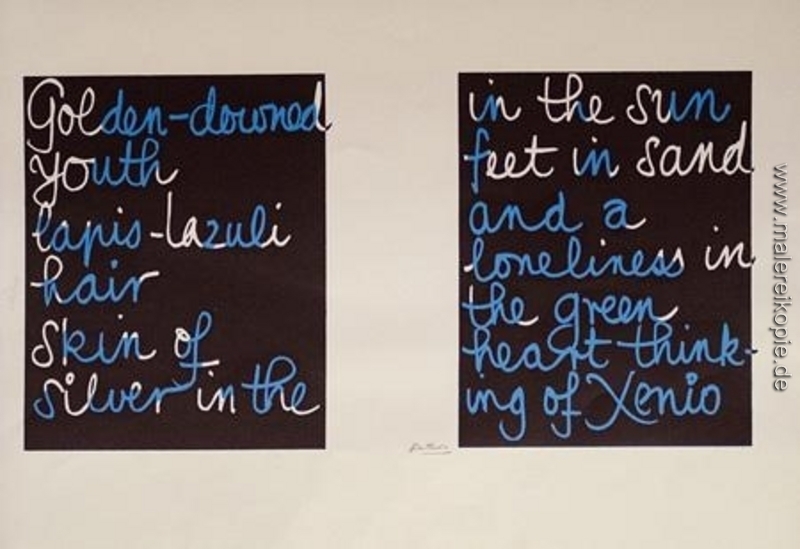 Golden-downed
Youth
lapis-lazuli
hair
Skin of
silver in the
in the sun
feet in sand
and a
loneliness in
the green
heart think-
ing of Xenio
www.malereikopie.de